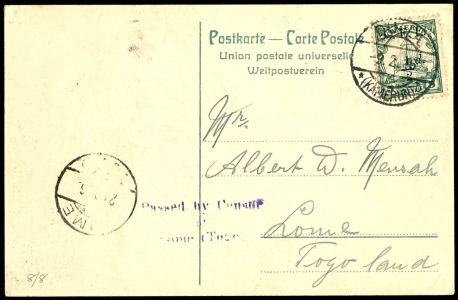 Postkarte — Carte Postale
Union postale universelle
Weltpostverein
(KAMERUN)
Mr.
Albert W. Mensah
Lome
Togo land
Passed by Censor
8/8